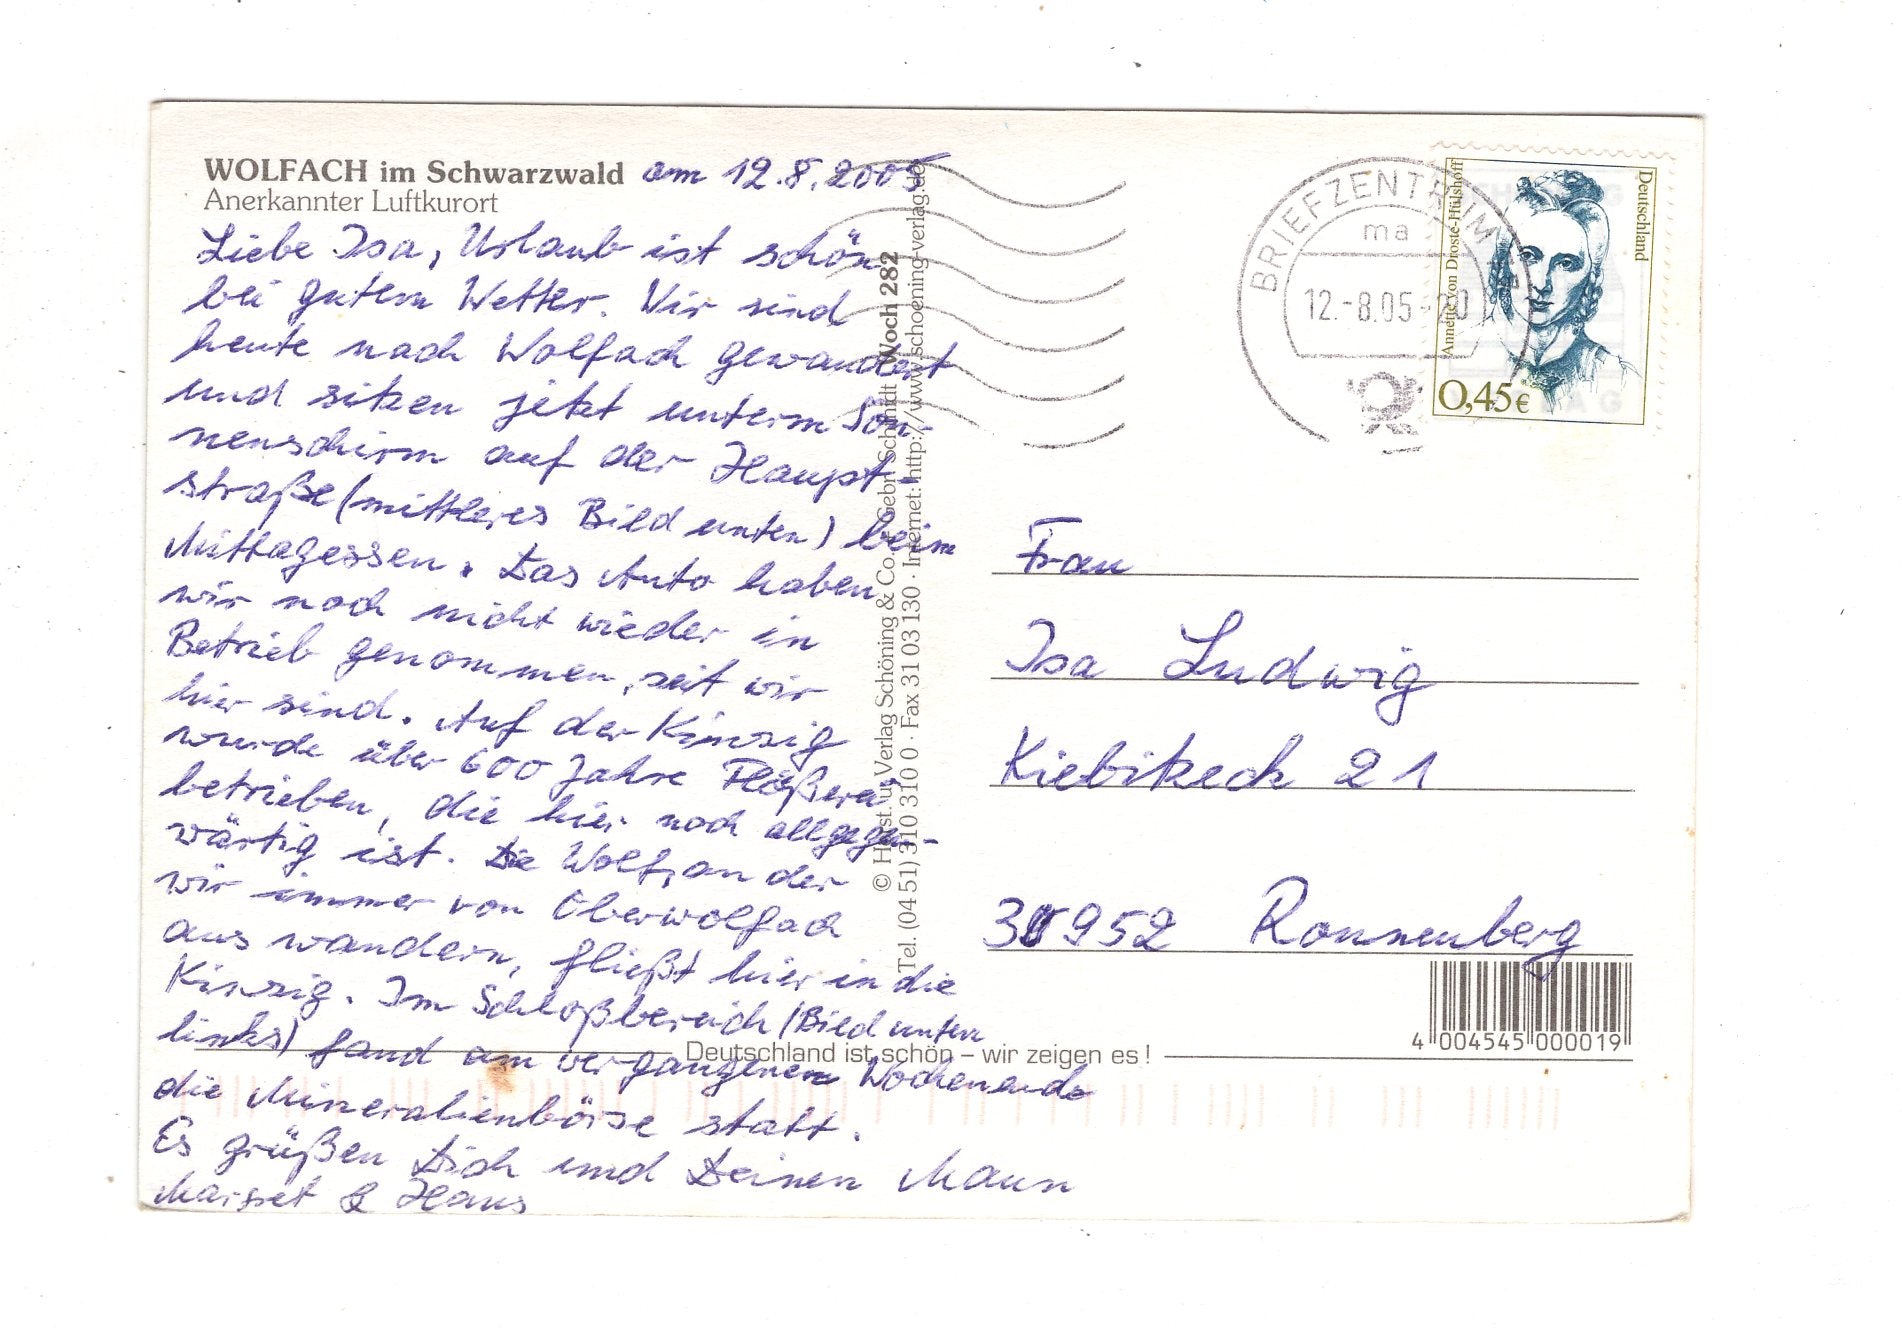 WOLFACH im Schwarzwald am 12.8.2005
Anerkannter Luftkurort
Liebe Isa, Urlaub ist schön
bei gutem Wetter. Wir sind
heute nach Wolfach gewandert
und sitzen jetzt unterm Son-
nenschirm auf der Haupt-
straße (mittleres Bild unten) beim
Mittagessen. Das Auto haben
wir noch nicht wieder in
Betrieb genommen, seit wir
hier sind. Auf der Kinzig
wurde über 600 Jahre Flößerei
betrieben, die hier noch allgegen-
wärtig ist. Die Wolf, an der
wir immer von Oberwolfach
aus wandern, fließt hier in die
Kinzig. Im Schloßbereich (Bild unten
links) fand am vergangenen Wochenende
die Mineralienbörse statt.
Es grüßen Dich und Deinen Mann
Margret & Hans
© Horst. u. Verlag Schöning & Co. + Gebr. Schmidt Woch 282
Tel. (04 51) 310 310 0 · Fax 31 03 130 · Internet: http://www.schoening-verlag.de
BRIEFZENTRUM
ma
12.-8.05-20
Deutschland
Annette von Droste-Hülshoff
0,45€
Frau
Isa Ludwig
Kiebitzeck 21
30952 Ronnenberg
4 004545 000019
Deutschland ist schön – wir zeigen es !